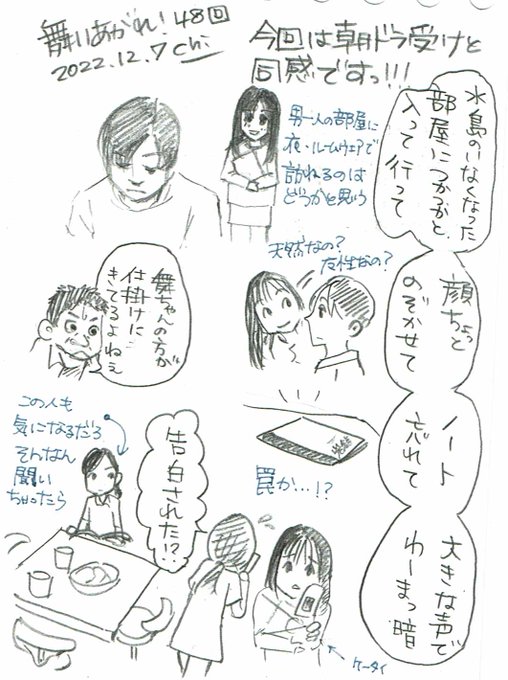 舞いあがれ！48回
2022.12.7 Chi
今回は朝ドラ受けと
同感ですっ!!!
水島のいなくなった
部屋につかつかと
入って行って
男一人の部屋に
夜・ルームウェアで
訪れるのは
どうかと思う
顔ちょっと
のぞかせて
天然なの？
女性なの？
舞ちゃんの方が
仕掛けに
きてるよねぇ
ノート
忘れて
罠か…!?
この人も
気になるだろ
そんなん
聞い
ちゃったら
告白された!?
大きな声で
わーまっ暗
ケータイ